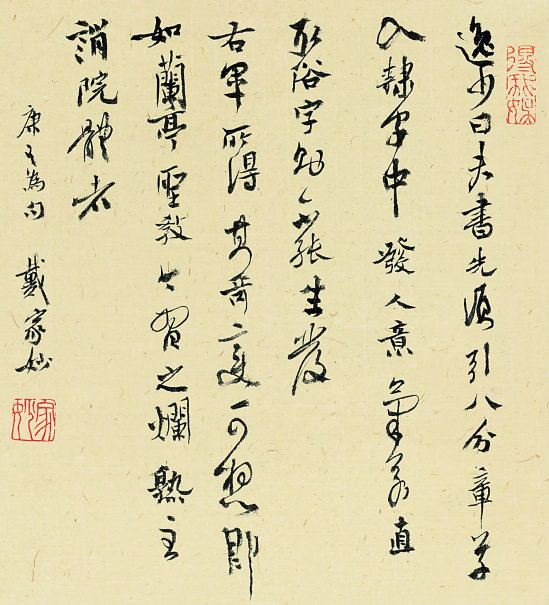 逸少曰夫書先須引八分章草
入隸字中發人意氣若直
取俗字則不能生發
右軍所得其奇變可想即
如蘭亭聖教今習之爛熟至
誚院體者
康有為句 戴家妙
家妙